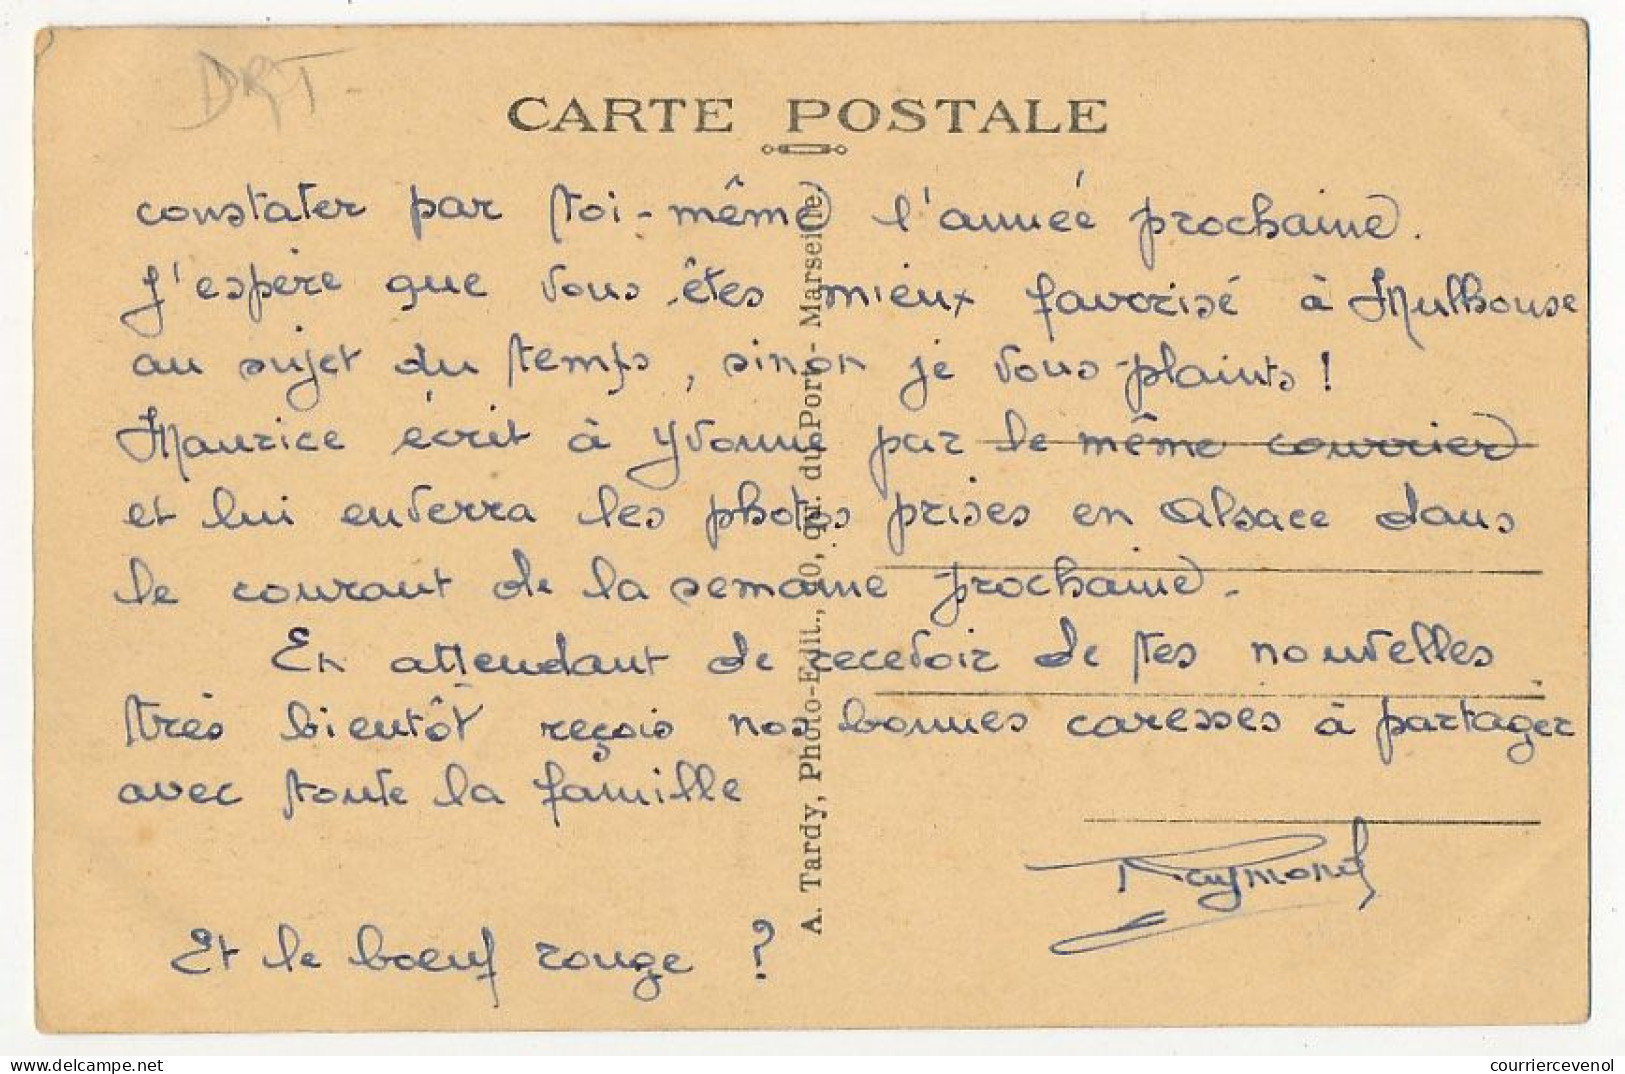 DRT -
CARTE POSTALE
constater par toi-même l'année prochaine.
J'espère que vous êtes mieux favorisé à Mulhouse
au sujet du temps, sinon je vous plaints !
Maurice écrit à Yvonne par le même courrier
et lui enverra les photos prises en Alsace dans
le courant de la semaine prochaine.
En attendant de recevoir de tes nouvelles
très bientôt reçois nos bonnes caresses à partager
avec toute la famille
Raymond
Et le boeuf rouge ?
A. Tardy, Photo-Edit., 10, qu. du Port - Marseille
courriercevenol